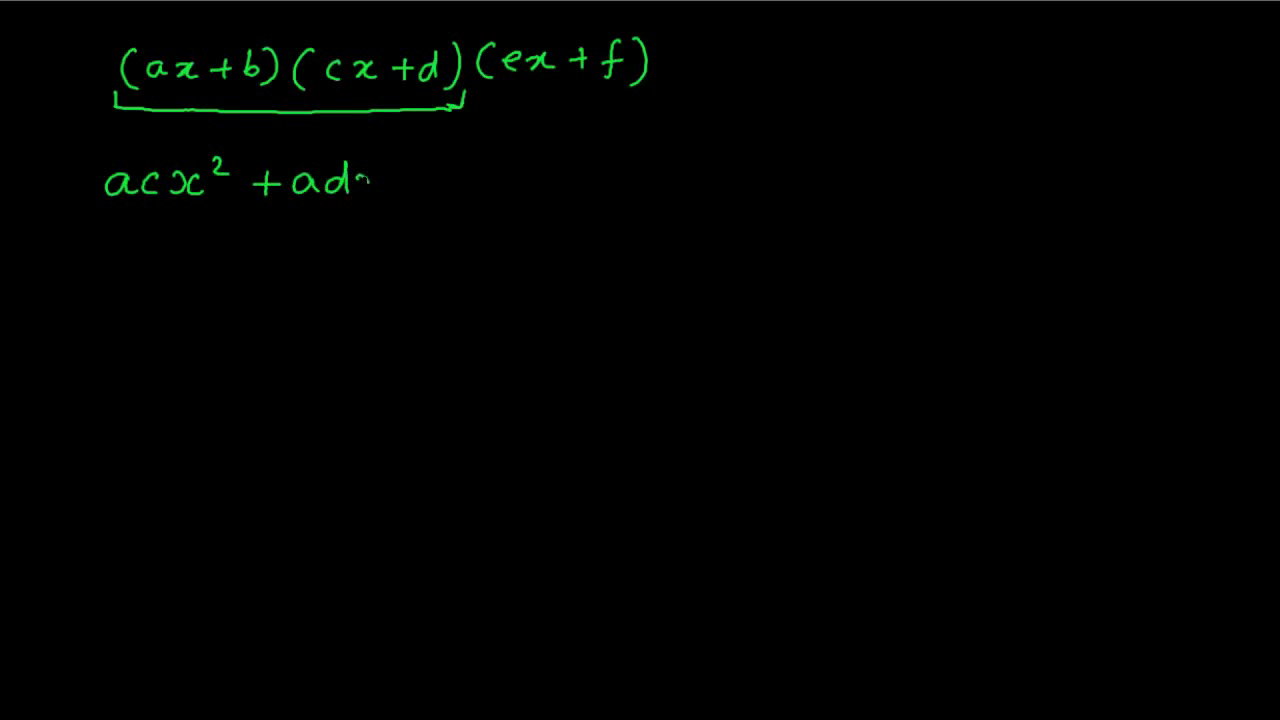 (ax+b)(cx+d)(ex+f)
acx² +ad